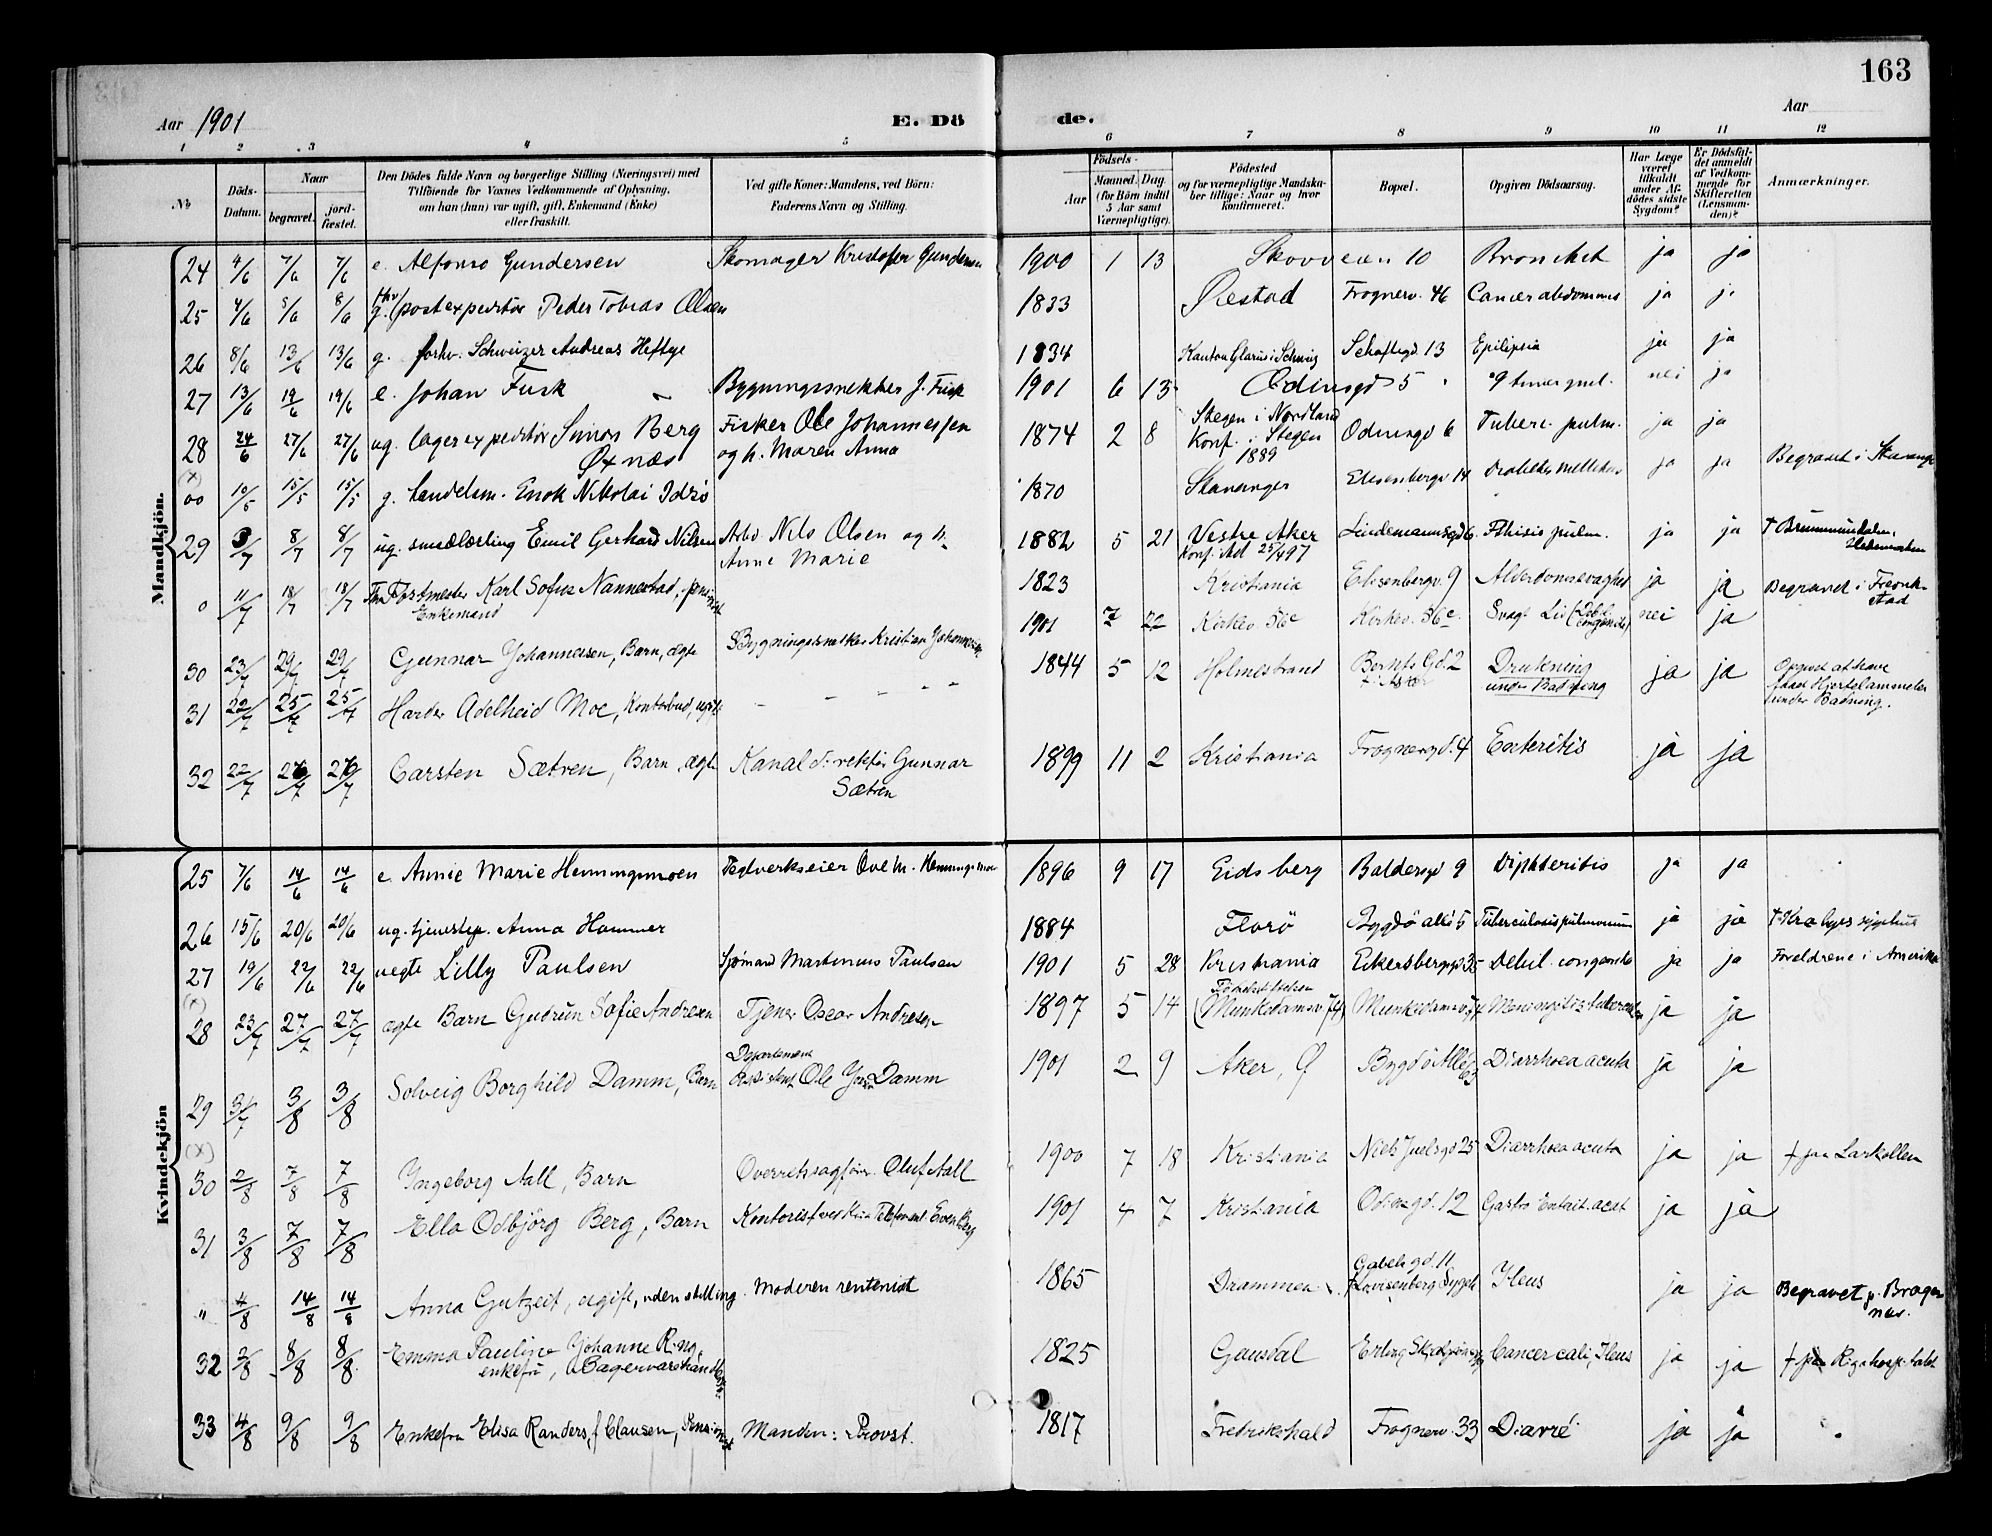 163
Aar 1901
E. Dö
de.
Aar
1 2 3 4 5 6 7 8 9 10 11 12
№
Döds-Datum.
Naar
begravet.
jord-fæstet.
Den Dödes fulde Navn og borgerlige Stilling (Næringsvei) med
Tilföiende for Voxnes Vedkommende af Oplysning,
om han (hun) var ugift, gift, Enkemand (Enke)
eller fraskilt.
Ved gifte Koner: Mandens, ved Börn:
Faderens Navn og Stilling.
Födsels-
Aar
Maaned. Dag.
(for Börn indtil
5 Aar samt
Værnepligtige).
Födested
og for værnepligtige Mandska-
ber tillige: Naar og hvor
konfirmeret.
Bopæl.
Opgiven Dödsaarsag.
Har Læge
været
tilkaldt
under Af-
dödes sidste
Sygdom?
Er Dödsfal-
det anmeldt
af Vedkom-
mende for
Skifteretten
(Lensman-
den)?
Anmærkninger.
Mandkjön.
24 4/6 7/6 7/6 e. Alfonso Gundersen Skomager Kristofer Gundersen 1900 1 13 Skovveien 10 Bronchit ja ja
25 4/6 8/6 8/6 g. fhv. postexpeditör Peder Tobias Olsen 1833 Frognerv. 46 Cancer abdominis ja ja
26 8/6 13/6 13/6 g. forhv. Schweizer Andreas Heftye 1834 Kanton Glarus i Schweiz 13 Epilepsia ja ja
27 13/6 19/6 19/6 e. Johan Fusk Bygningssnekker J. Fusk 1901 6 13 Odinsgd 5 9 timer gml. nei ja
28 24/6 27/6 27/6 ug. lagerexpeditör Simon Berg Fisker Ole Johannessen 1874 2 8 Stegen i Nordland Odinsgd 6 Tuberc. pulm. ja ja
Øxnæs og h. Maren Anna Konf. i Stegen
1889
(x) 00 10/5 15/5 15/5 g. handelsm. Enok Nikolai Idsö 1870 Stavanger Elisenbergv 14 Diabetes mellitus ja ja Begravet i Stavanger
29 3/7 8/7 8/7 ug. smedlærling Emil Gerhard Nilsen Arb. Nils Olsen og h. 1882 5 21 Vestre Aker Lindemannsgd 6 Fthisis pulm. ja ja † Brummundalen,
Anne Marie Hedemarken
0 11/7 18/7 18/7 Karl Sofus Nannestad, pensionist 1823 Kristiania Elisenbergv. 9 Alderdomssvaghed ja ja Begravet i Fredrik-
Enkemand stad
30 23/7 29/7 29/7 Gunnar Johannesen, Barn, ægte Bygningssnekker Kristian Johannesen 1901 7 22 Kirkev. 56c Kirkev. 56c. Svagt Liv (Debil. congenita) nei ja
31 22/7 25/7 25/7 Harder Adelheid Moe, Kontorbud, ugift 1844 5 12 Holmestrand Drukning ja ja Opgivet at have
under Badning faaet Hjertelammelse
under Badning.
32 22/7 26/7 26/7 Carsten Sætren, Barn, ægte Kanaldirektör Gunnar 1899 11 2 Kristiania Frognergd. 4 Enteritis ja ja
Sætren
Kvindekjön
25 7/6 14/6 14/6 e. Annie Marie Henningsmoen Teglverkseier Ove M. Henningsmoen 1896 9 17 Eidsberg Baldersgd 9 Diphteritis ja ja
26 15/6 20/6 20/6 ug. tjenestep. Anna Hammer 1884 Florö Bygdö allé 5 Tuberculosis pulmonum ja ja † Kra byes sygehus
27 19/6 22/6 22/6 uegte Lilly Paulsen Sjömand Martinius Paulsen 1901 5 28 Kristiania Eckersbergsgd 35 Debil. congenita ja ja Foreldrene i Amerika
(x) 28 23/7 27/7 27/7 ægte Barn Gudrun Sofie Andresen Tjener Oscar Andresen 1897 5 14 Munkedamsv. 74 Munkedamsv. 74 Meningitis tubercul. ja ja
29 31/7 3/8 3/8 Solveig Borghild Damm, Barn Departement
Assistent Ole Damm 1901 2 9 Aker, Ø Bygdö Allé 63 Diarrhoea acuta ja ja
(x) 30 2/8 7/8 7/8 Ingeborg Aall, Barn Overretssagförer Oluf Aall 1900 7 18 Kristiania Niels Juelsgd 25 Diarrhoea acuta ja ja † paa Larkollen
31 3/8 7/8 7/8 Ella Odbjörg Berg, Barn Kontorist ved Kria Telefonanl. Even Berg 1901 4 7 Kristiania Odinsgd. 12 Gastro Enterit. acut ja ja
" 4/8 14/8 14/8 Anna Gutzeit, ugift, uden stilling. Moderen rentenist 1865 Drammen Gabelsgd. 11
† Lovisenberg Sygeh. Ileus ja ja Begravet p. Brager-
næs.
32 3/8 8/8 8/8 Emma Pauline Johanne Ring, 1825 Gausdal Cancer coli, Ileus ja ja † paa Rigshospitalet
enkefru,
33 4/8 9/8 9/8 Enkefru Elisa Randers, f Clausen, Pensionist Manden: Provst. 1817 Fredrikshald Frognerv. 33 Diarré ja ja